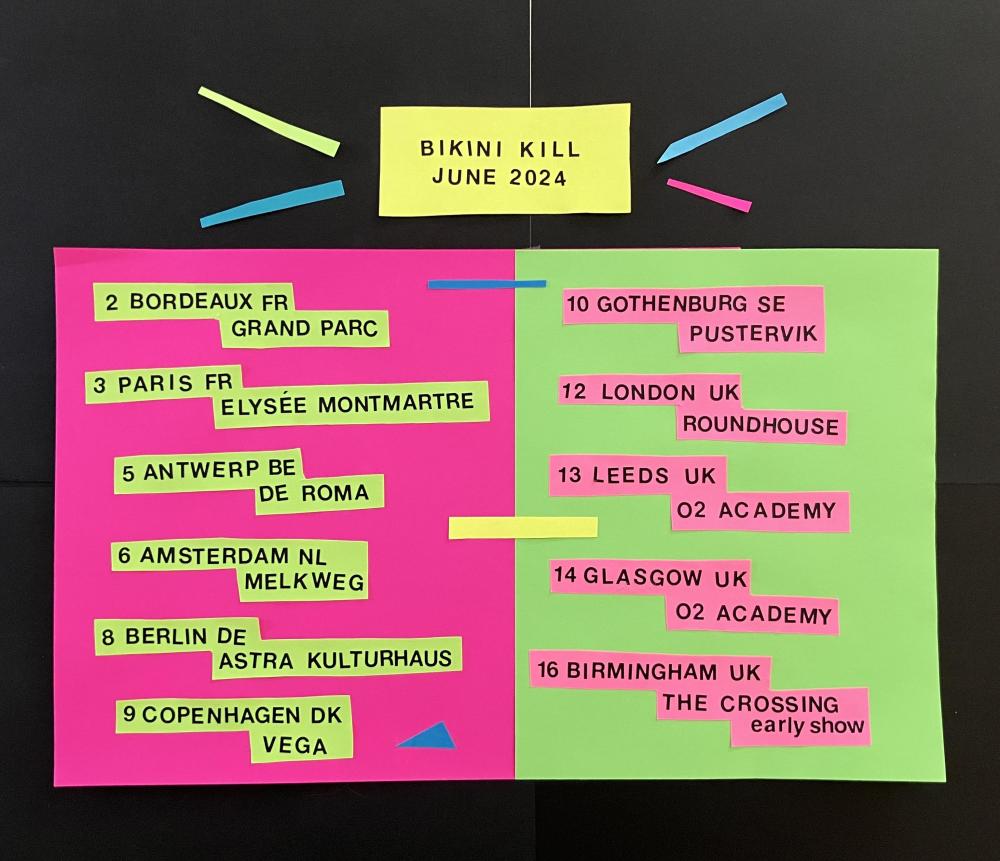 BIKINI KILL
JUNE 2024
2 BORDEAUX FR
GRAND PARC
3 PARIS FR
ELYSÉE MONTMARTRE
5 ANTWERP BE
DE ROMA
6 AMSTERDAM NL
MELKWEG
8 BERLIN DE
ASTRA KULTURHAUS
9 COPENHAGEN DK
VEGA
10 GOTHENBURG SE
PUSTERVIK
12 LONDON UK
ROUNDHOUSE
13 LEEDS UK
O2 ACADEMY
14 GLASGOW UK
O2 ACADEMY
16 BIRMINGHAM UK
THE CROSSING
early show